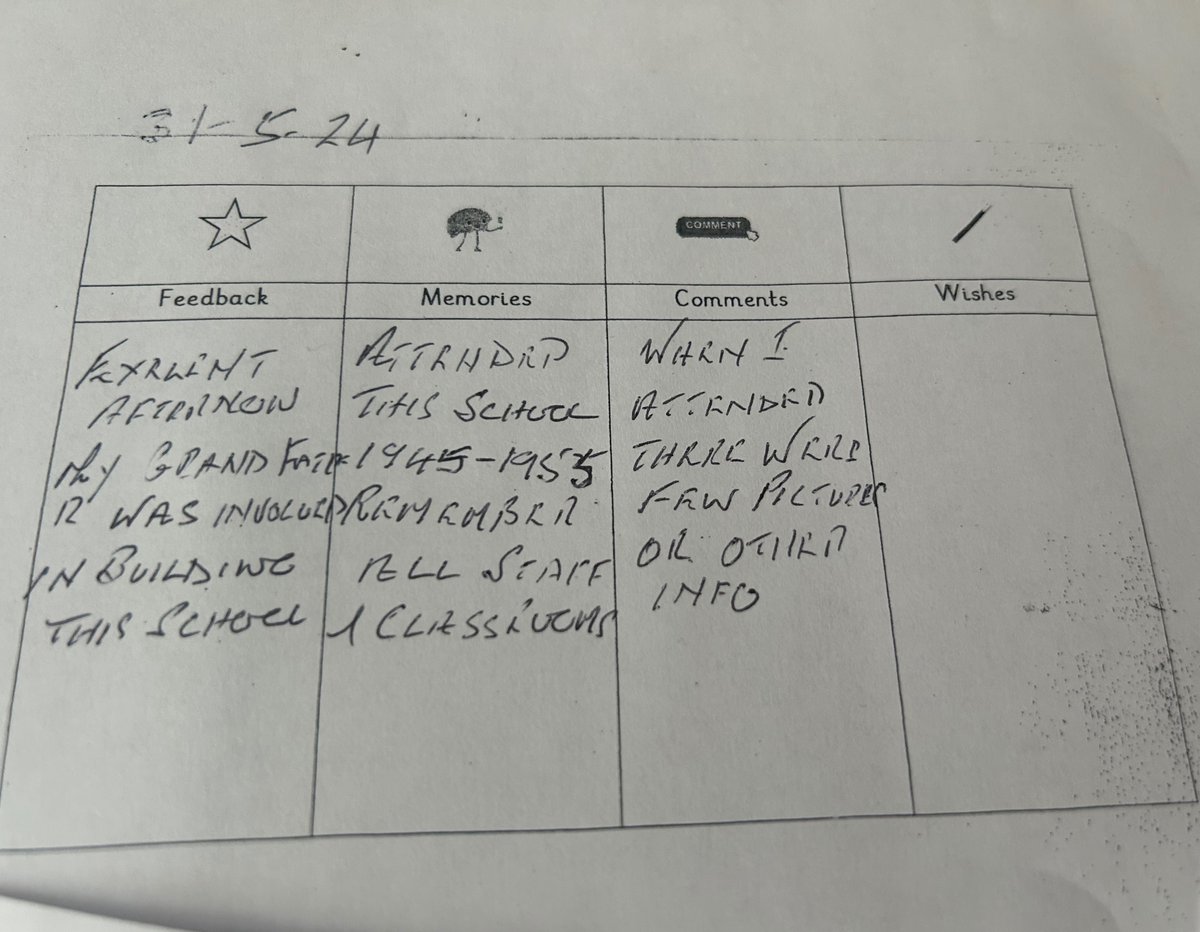 31-5-24
COMMENT
Feedback
Memories
Comments
Wishes
EXELENT
AFTERNOON
MY GRANDFATHE
R WAS INVOLVED
IN BUILDING
THIS SCHOOL
ATTENDED
THIS SCHOOL
1945-1955
REMEMBER
ALL STAFF
& CLASSROOMS
WHEN I
ATTENDED
THERE WERE
FEW PICTURES
OR OTHER
INFO